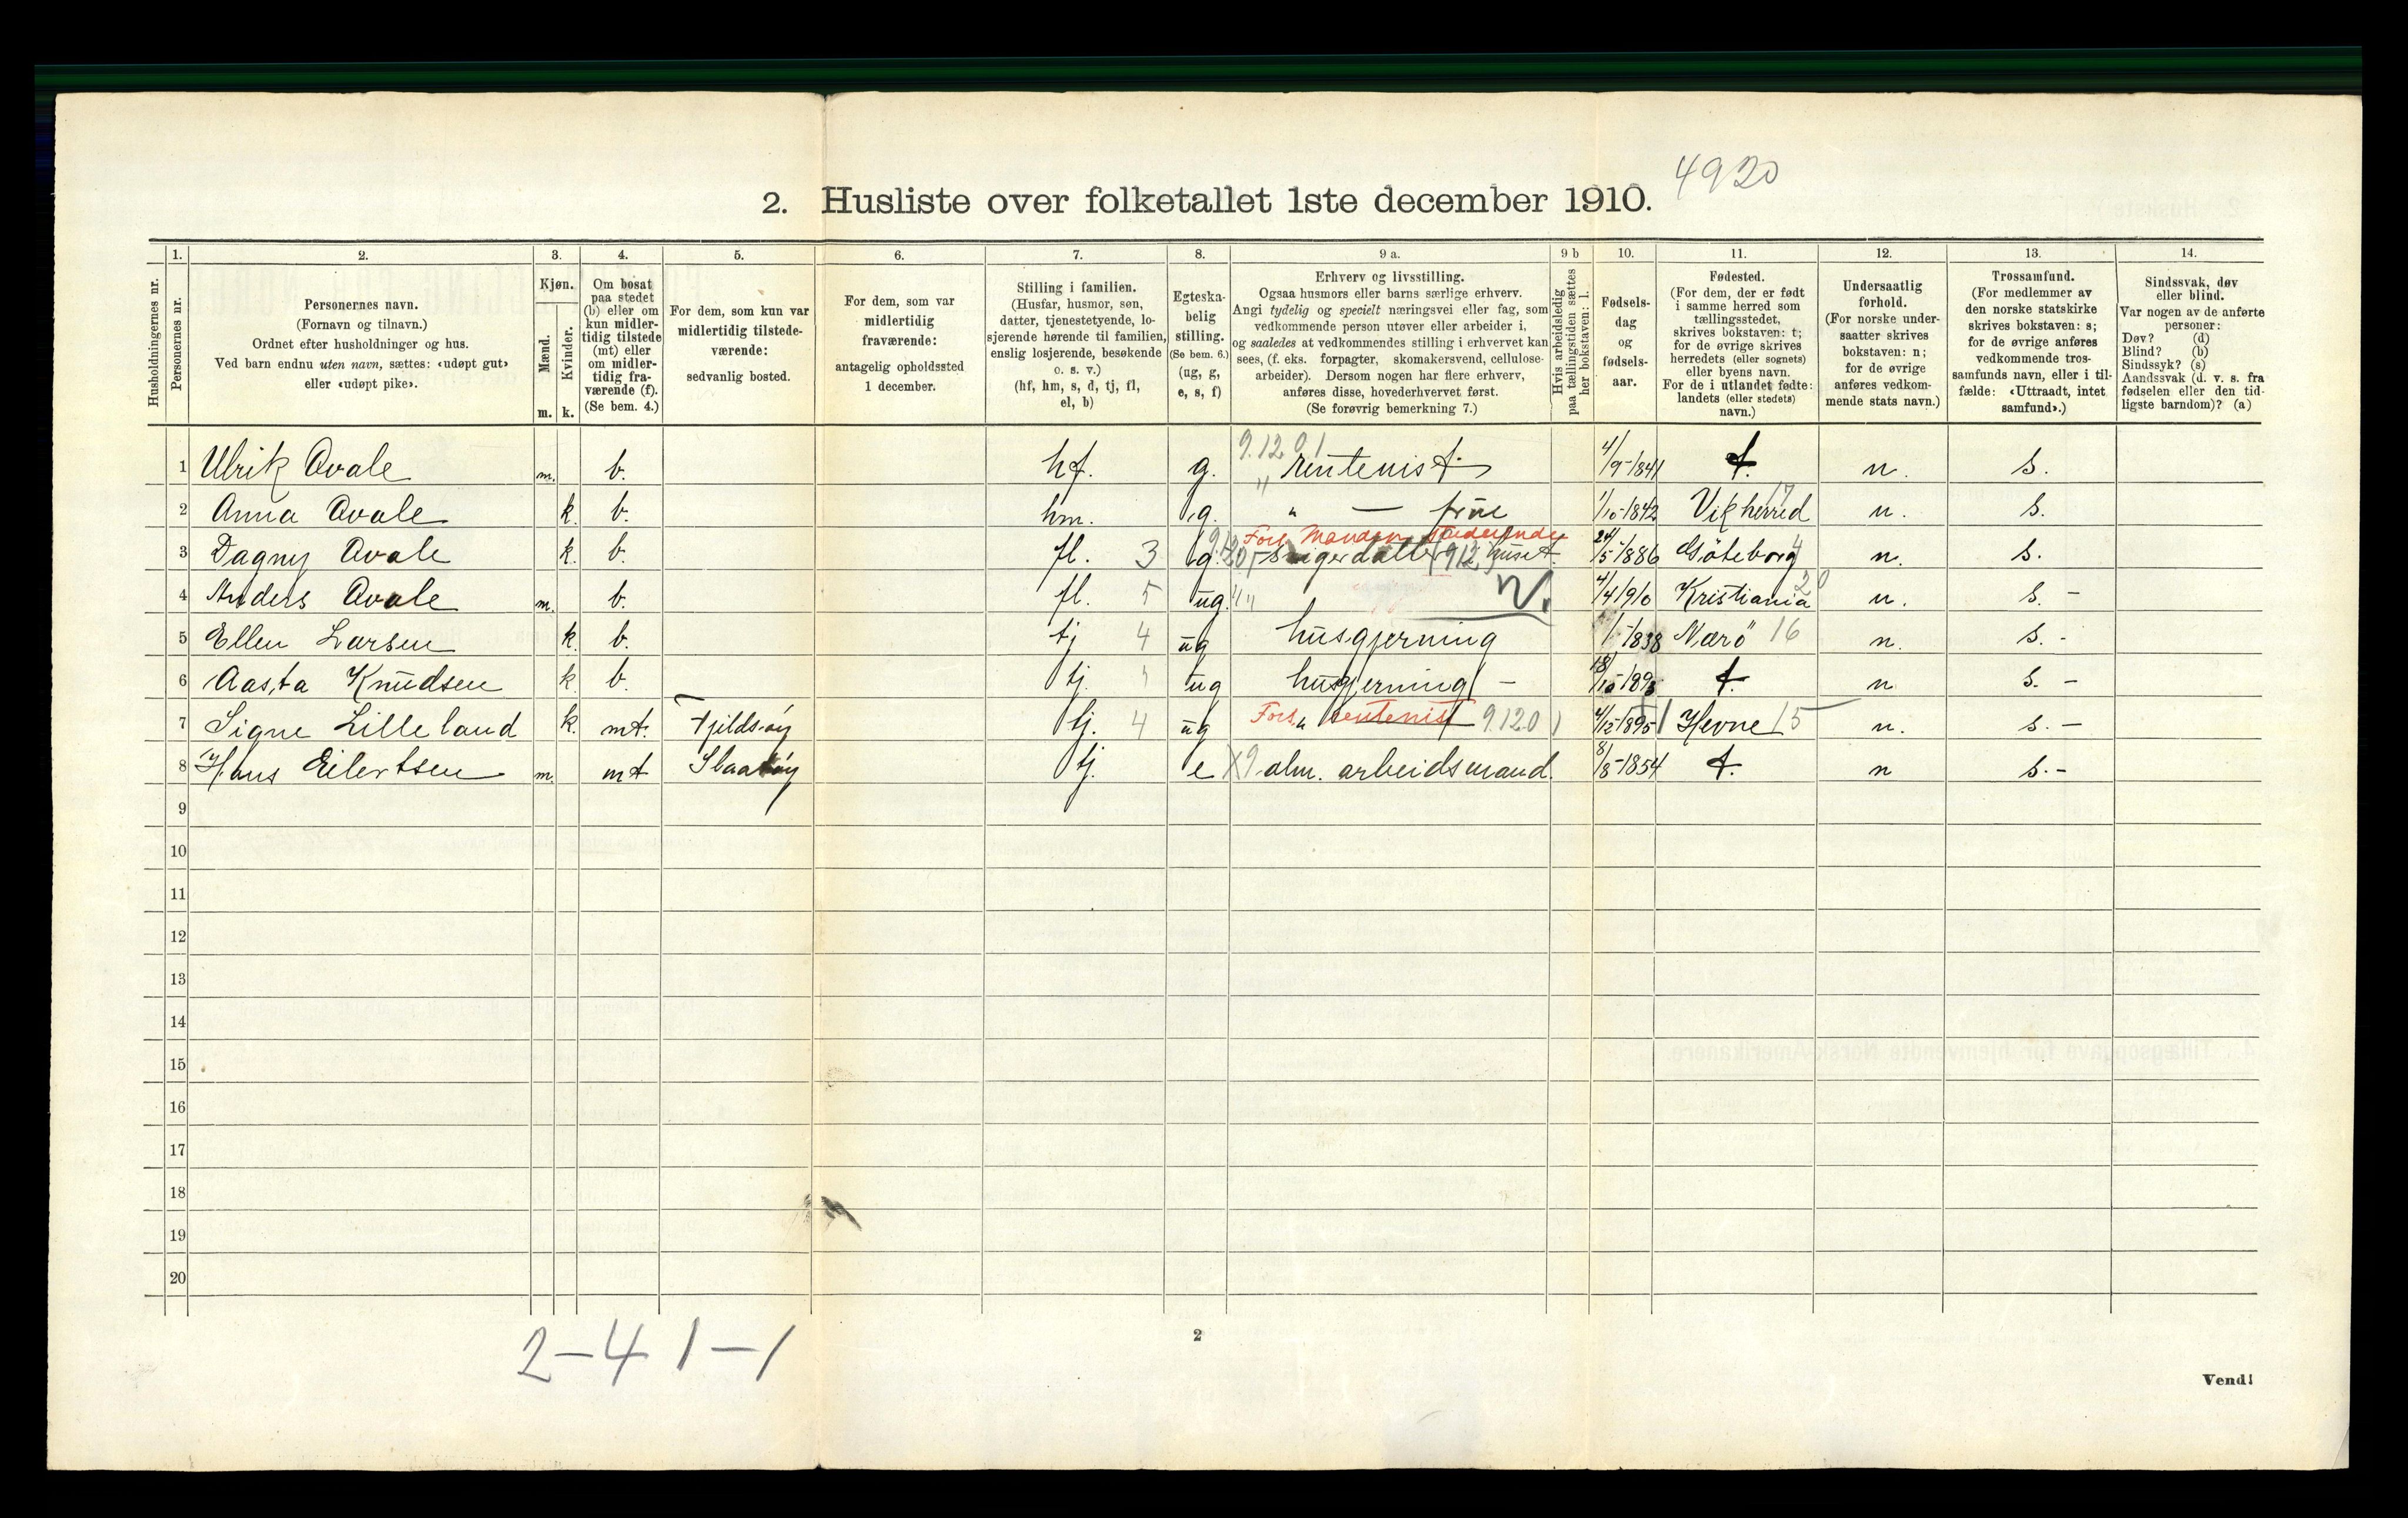 4920
2. Husliste over folketallet 1ste december 1910.
Husholdningernes nr.
1.
Personernes nr.
2.
Personernes navn.
(Fornavn og tilnavn.)
Ordnet efter husholdninger og hus.
Ved barn endnu uten navn, sættes: «udøpt gut»
eller «udøpt pike».
3.
Kjøn.
Mænd.
Kvinder.
m. k.
4.
Om bosat
paa stedet
(b) eller om
kun midler-
tidig tilstede
(mt) eller
om midler-
tidig fra-
værende (f).
(Se bem. 4.)
5.
For dem, som kun var
midlertidig tilstede-
værende:
sedvanlig bosted.
6.
For dem, som var
midlertidig
fraværende:
antagelig opholdssted
1 december.
7.
Stilling i familien.
(Husfar, husmor, søn,
datter, tjenestetyende, lo-
sjerende hørende til familien,
enslig losjerende, besøkende
o. s. v.)
(hf, hm, s, d, tj, fl,
el, b)
8.
Egteska-
belig
stilling.
(Se bem. 6.)
(ug, g,
e, s, f)
9 a.
Erhverv og livsstilling.
Ogsaa husmors eller barns særlige erhverv.
Angi tydelig og specielt næringsvei eller fag, som
vedkommende person utøver eller arbeider i,
og saaledes at vedkommendes stilling i erhvervet kan
sees, (f. eks. forpagter, skomakersvend, cellulose-
arbeider). Dersom nogen har flere erhverv,
anføres disse, hovederhvervet først.
(Se forøvrig bemerkning 7.)
9 b
Hvis arbeidsledig
paa tællingstiden sættes
her bokstaven: l.
10.
Fødsels-
dag
og
fødsels-
aar.
11.
Fødested.
(For dem, der er født
i samme herred som
tællingsstedet,
skrives bokstaven: t;
for de øvrige skrives
herredets (eller sognets)
eller byens navn.
For de i utlandet fødte:
landets (eller stedets)
navn.)
12.
Undersaatlig
forhold.
(For norske under-
saatter skrives
bokstaven: n;
for de øvrige
anføres vedkom-
mende stats navn.)
13.
Trossamfund.
(For medlemmer av
den norske statskirke
skrives bokstaven: s;
for de øvrige anføres
vedkommende tros-
samfunds navn, eller i til-
fælde: «Uttraadt, intet
samfund».)
14.
Sindssvak, døv
eller blind.
Var nogen av de anførte
personer:
Døv? (d)
Blind? (b)
Sindssyk? (s)
Aandssvak (d. v. s. fra
fødselen eller den tid-
ligste barndom)? (a)
9.12.01
1 Ulrik Qvale m. b. hf. g. rentenist 4/9-1841 t. n. s.
2 Anna Qvale k. b. hm. g. " — frue 1/10-1842 Vik herred 17 n. s.
Fors. Manden
3 Dagny Qvale k. b. fl. 3 g. svigerdatter 9.12. huset 24/5-1886 Göteborg 4 n. s.
4 Anders Qvale m. b. fl. 5 ug. N. 4/4 1910 Kristiania 20 n. s. -
5 Ellen Larsen k. b. tj 4 ug husgjerning 1838 Nærö 16 n. s. -
6 Aasta Knudsen k. b. tj. ug husgjerning - 18/10-1893 t. n s. -
7 Signe Lilleland k. mt. Fjeldsöy tj. 4 ug Fors. rentenist 9.120 4/12-1895 Hevne 15 n. s. -
8 Hans Eilertsen m. mt tj. e alm. arbeidsmand. 8/8-1854 t. n s. -
9
10
11
12
13
14
15
16
17
18
19
20
2-4 1-1
2
Vend!